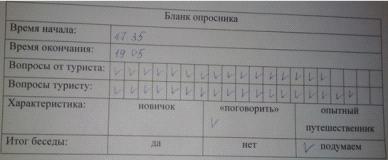 Бланк опросника
Время начала: 17 35
Время окончания: 19 05
Вопросы от туриста: ✓ ✓ ✓ ✓ ✓ ✓ ✓ ✓ ✓ ✓ ✓ ✓ ✓ ✓ ✓ ✓
Вопросы туристу: ✓ ✓ ✓ ✓ ✓ ✓ ✓ ✓ ✓ ✓ ✓ ✓ ✓ ✓ ✓ ✓ ✓ ✓
Характеристика: новичок «поговорить» опытный
✓ путешественник
Итог беседы: да нет ✓ подумаем